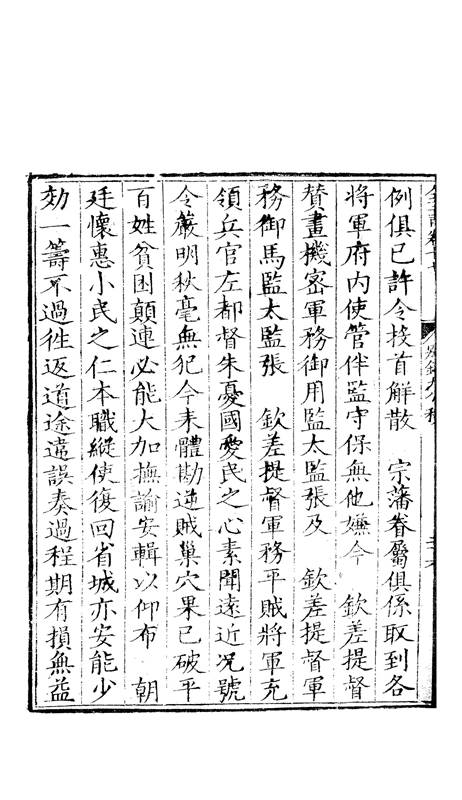 例俱已許令投首解散　宗藩眷屬俱係取到各
將軍府内使管伴監守保無他嫌今　欽差提督
賛畫機密軍務御用監太監張及　欽差提督軍
務御馬監太監張　欽差提督軍務平賊將軍充
領兵官左都督朱憂國愛民之心素聞遠近况號
令嚴明秋毫無犯今来體勘逆賊巢穴果已破平
百姓貧困顛連必能大加撫諭安輯以仰布　朝
廷懷惠小民之仁本職縱使復回省城亦安能少
効一籌不過徃返道途違誤奏過程期有損無益